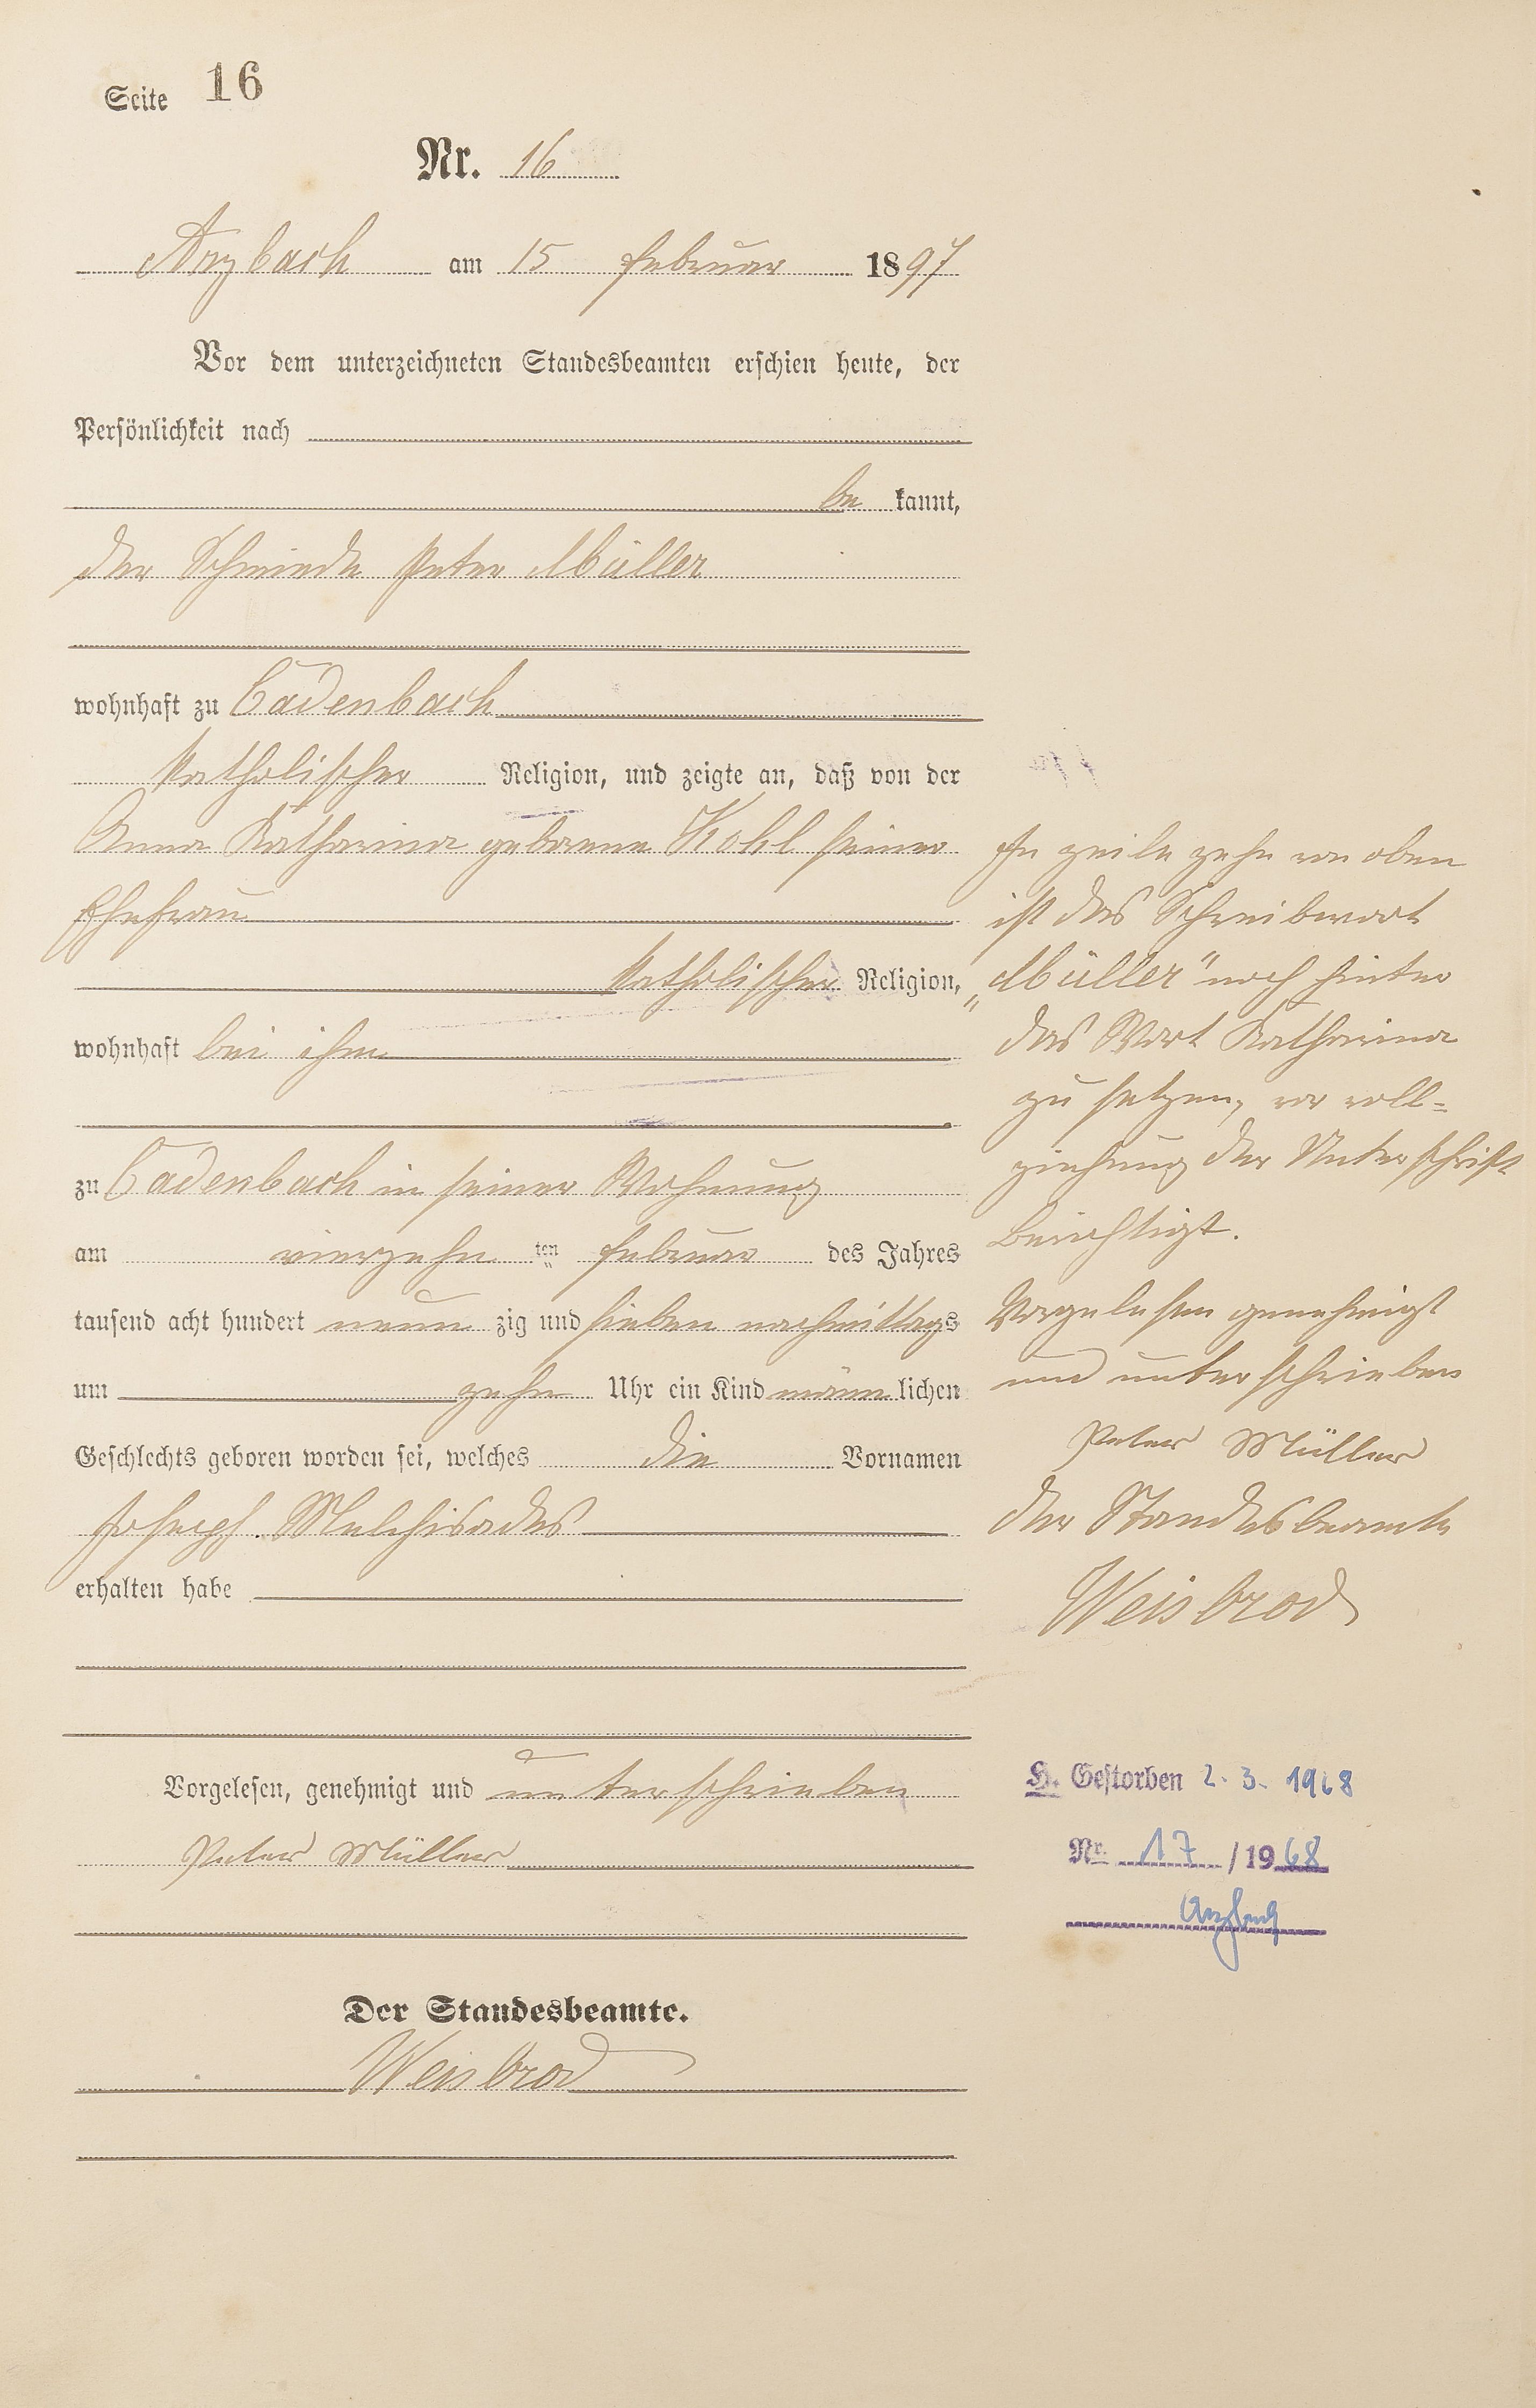 Seite 16
Nr. 16
Arzbach am 15 Februar 1897
Vor dem unterzeichneten Standesbeamten erschien heute, der
Persönlichkeit nach
be kannt,
der Schmiede Peter Müller
wohnhaft zu Cadenbach
katholischer Religion, und zeigte an, daß von der
Anna Katharina geborene Kohl seiner
Ehefrau
katholischer Religion,
wohnhaft bei ihm
zu Cadenbach in seiner Wohnung
am vierzehn ten Februar des Jahres
tausend acht hundert neun zig und sieben nachmittags
um zehn Uhr ein Kind männ lichen
Geschlechts geboren worden sei, welches die Vornamen
Joseph Melchisades
erhalten habe
Vorgelesen, genehmigt und unterschrieben
Peter Müller
Der Standesbeamte.
Weisbrod
In zeile zehn von oben
ist das Schreibwort
„Müller" noch hinter
das Wort Katharina
zu setzen, vor voll=
ziehung der Unterschrift
berichtigt.
Vorgelesen genehmigt
und unterschrieben
Peter Müller
der Standesbeamte
Weisbrod
H. Gestorben 2. 3. 1968
Nr. 17 / 1968
Arzbach